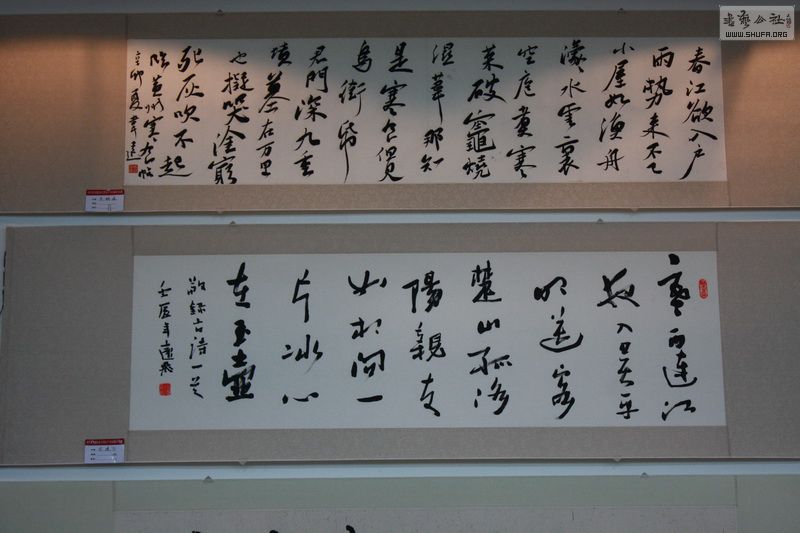 書藝公社
WWW.SHUFA.ORG
春江欲入戶
雨勢來不已
小屋如漁舟
濛水雲裏
空庖煮寒
菜破竈燒
溼葦那知
是寒食但見
烏銜帋
君門深九重
墳墓在万里
也擬哭塗窮
死灰吹不起
臨黄州寒食帖
辛卯夏
寒雨連江
夜入吴平
明送客
楚山孤洛
陽親友
如相问一
片冰心
在玉壺
敬録古詩一首
壬辰年